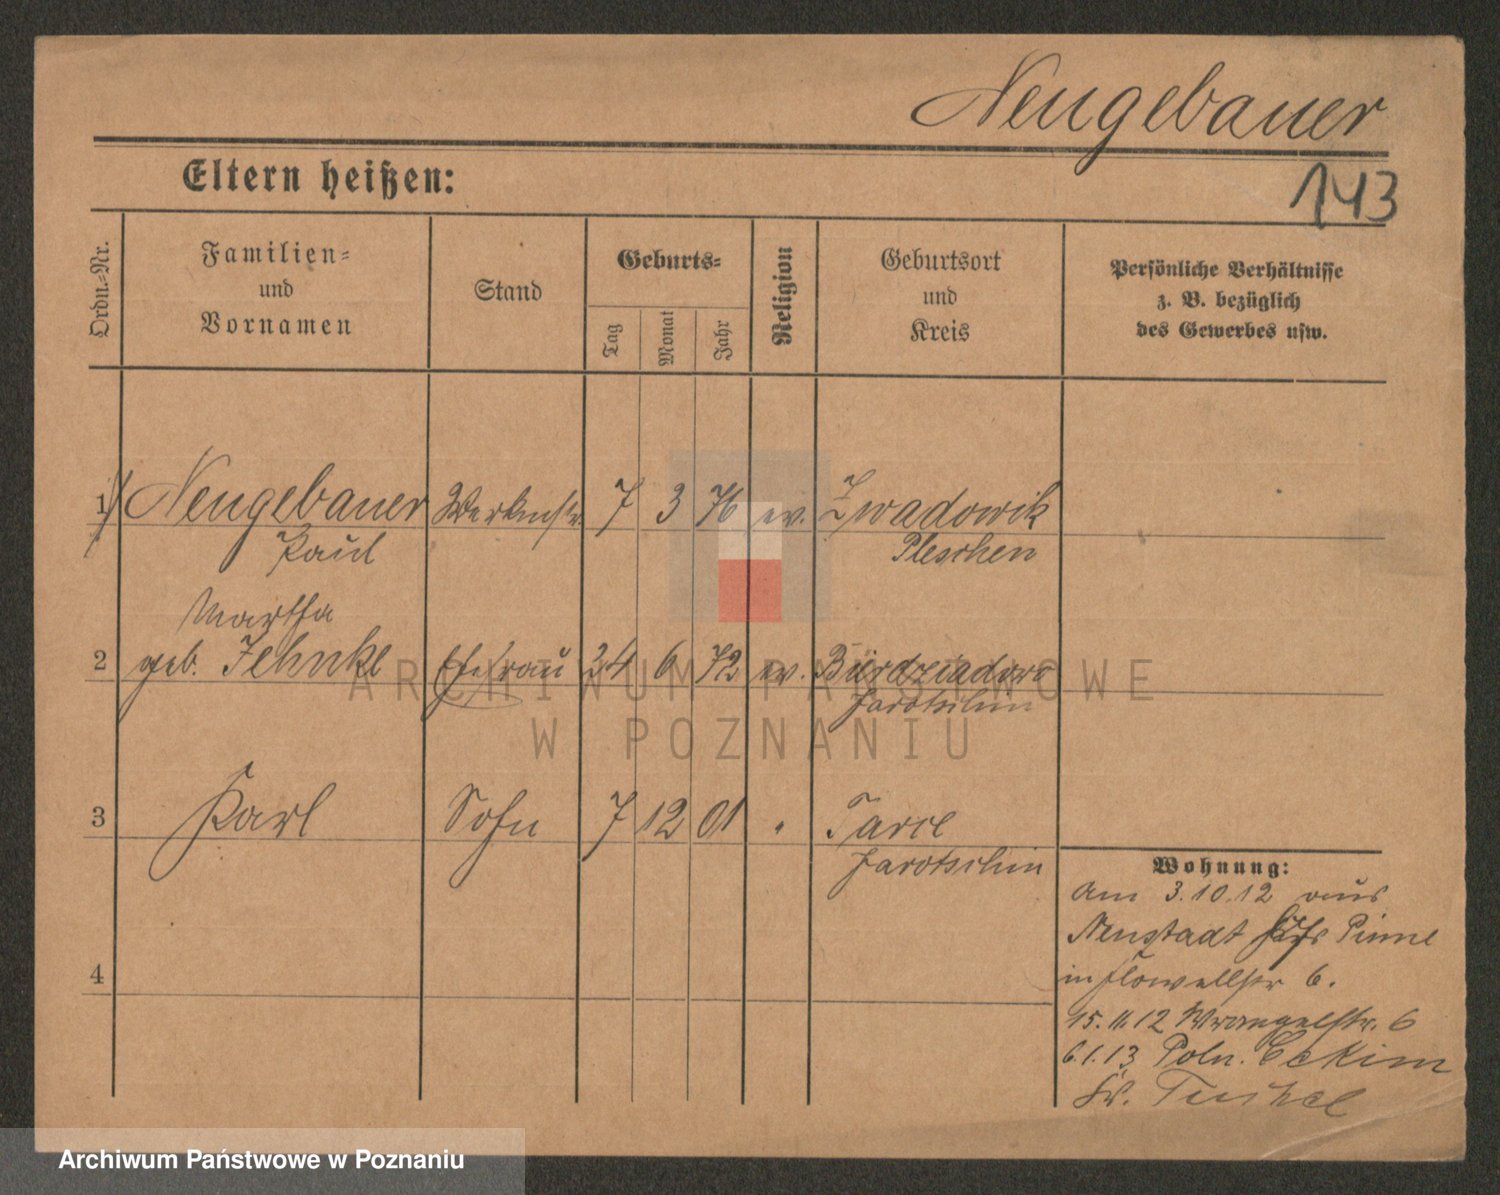 Neugebauer
Eltern heißen:
143
Ordn.-Nr.
Familien-
und
Vornamen
Stand
Geburts-
Tag
Monat
Jahr
Religion
Geburtsort
und
Kreis
Persönliche Verhältnisse
z. B. bezüglich
des Gewerbes usw.
1 Neugebauer Werkmstr. 7 3 76 ev. Zwadowik
Paul Pleschen
Martha
2 geb. Jehnke Ehefrau 24 6 72 ev.
Jarotschin
3 Karl Sohn 7 12 01 " Tarce
Jarotschin
4
Wohnung:
am 3.10.12 aus
Neustadt Pinne
in 6.
15.11.12 Wrangelstr. 6
6.1.13 Poln. Cekzin
Kr. Tuchel
ARCHIWUM PAŃSTWOWE
W POZNANIU
Archiwum Państwowe w Poznaniu